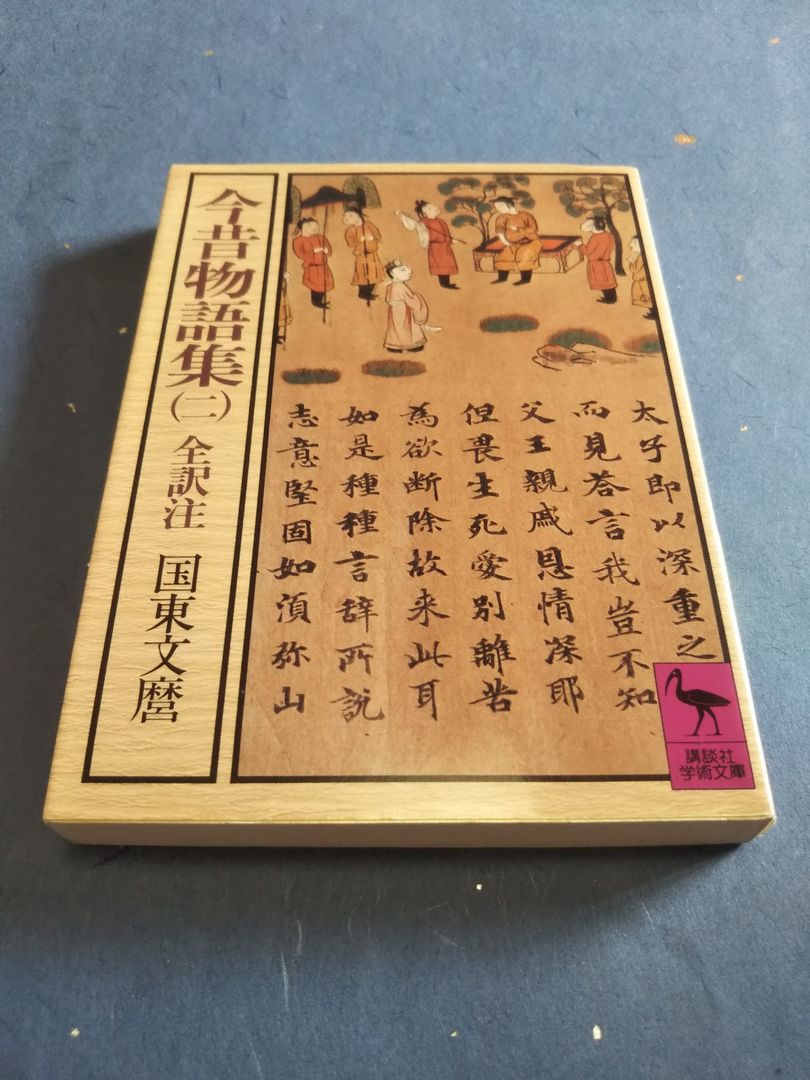 今昔物語集(二) 全訳注 国東文麿
太子即以深重之
而見荅言我豈不知
父王親戚恩情深耶
但畏生死愛別離苦
為欲断除故来此耳
如是種種言辞所説
志意堅固如湏弥山
講談社
学術文庫